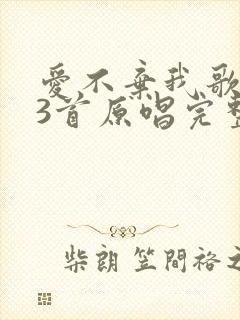 愛不棄我歌
3首原唱完整
柴朗 笠間裕之